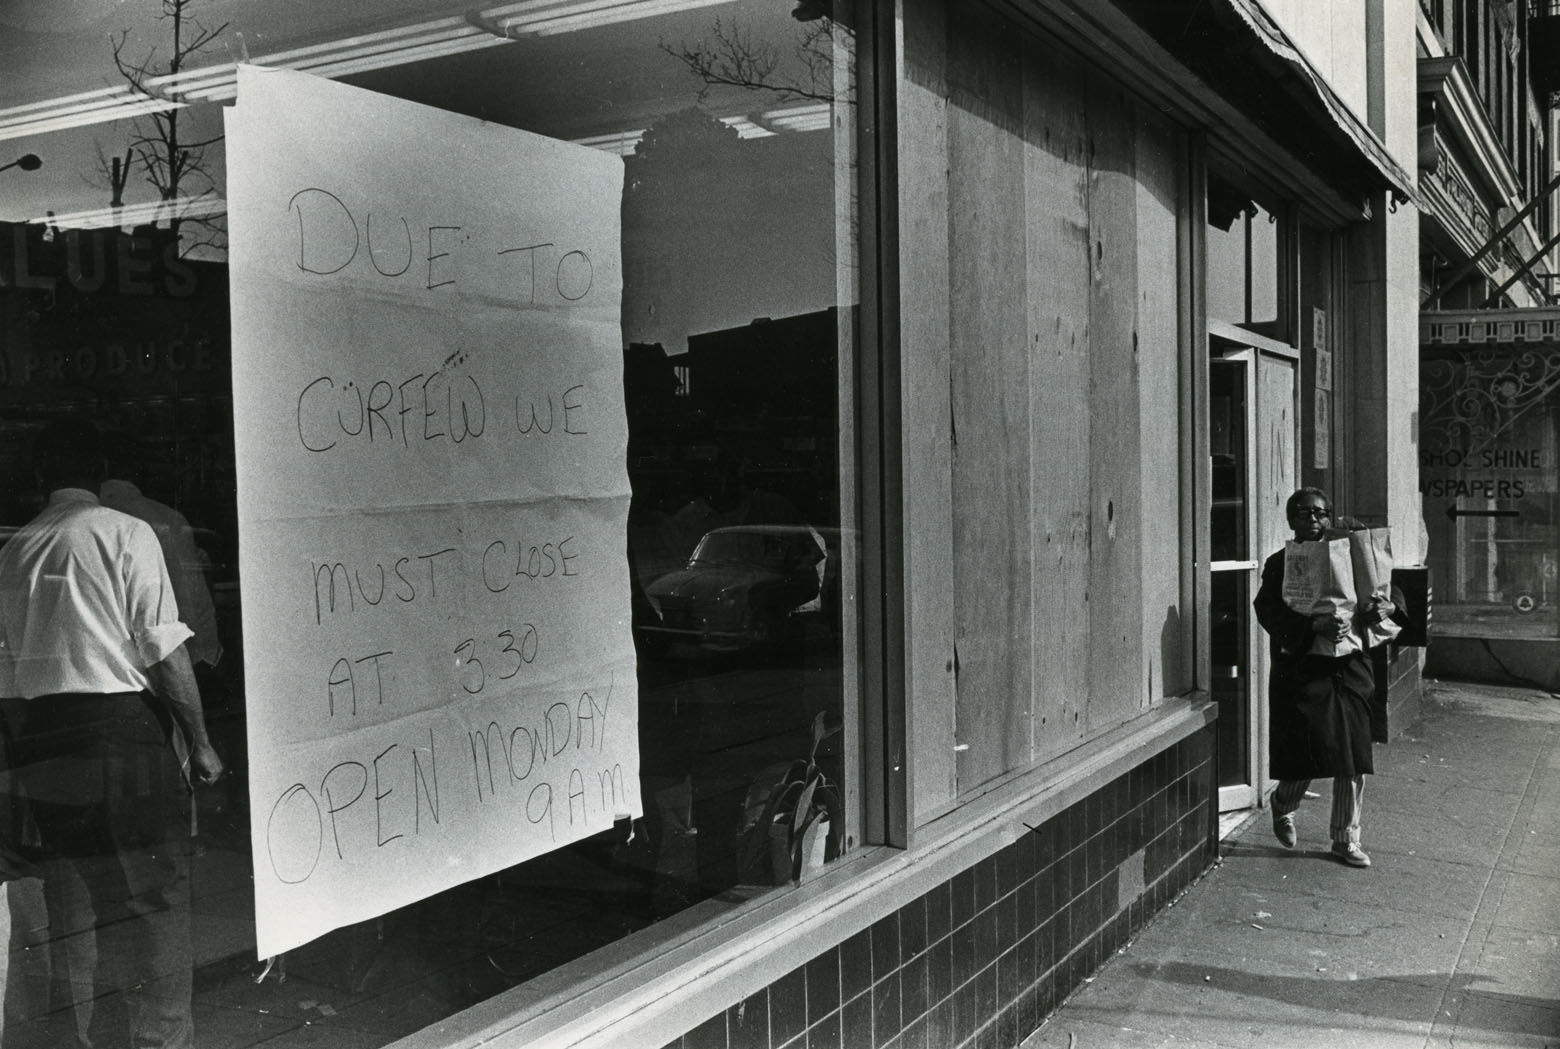 DUE TO
CURFEW WE
MUST CLOSE
AT 3.30
OPEN MONDAY
9 AM
PRODUCE
SHOE SHINE